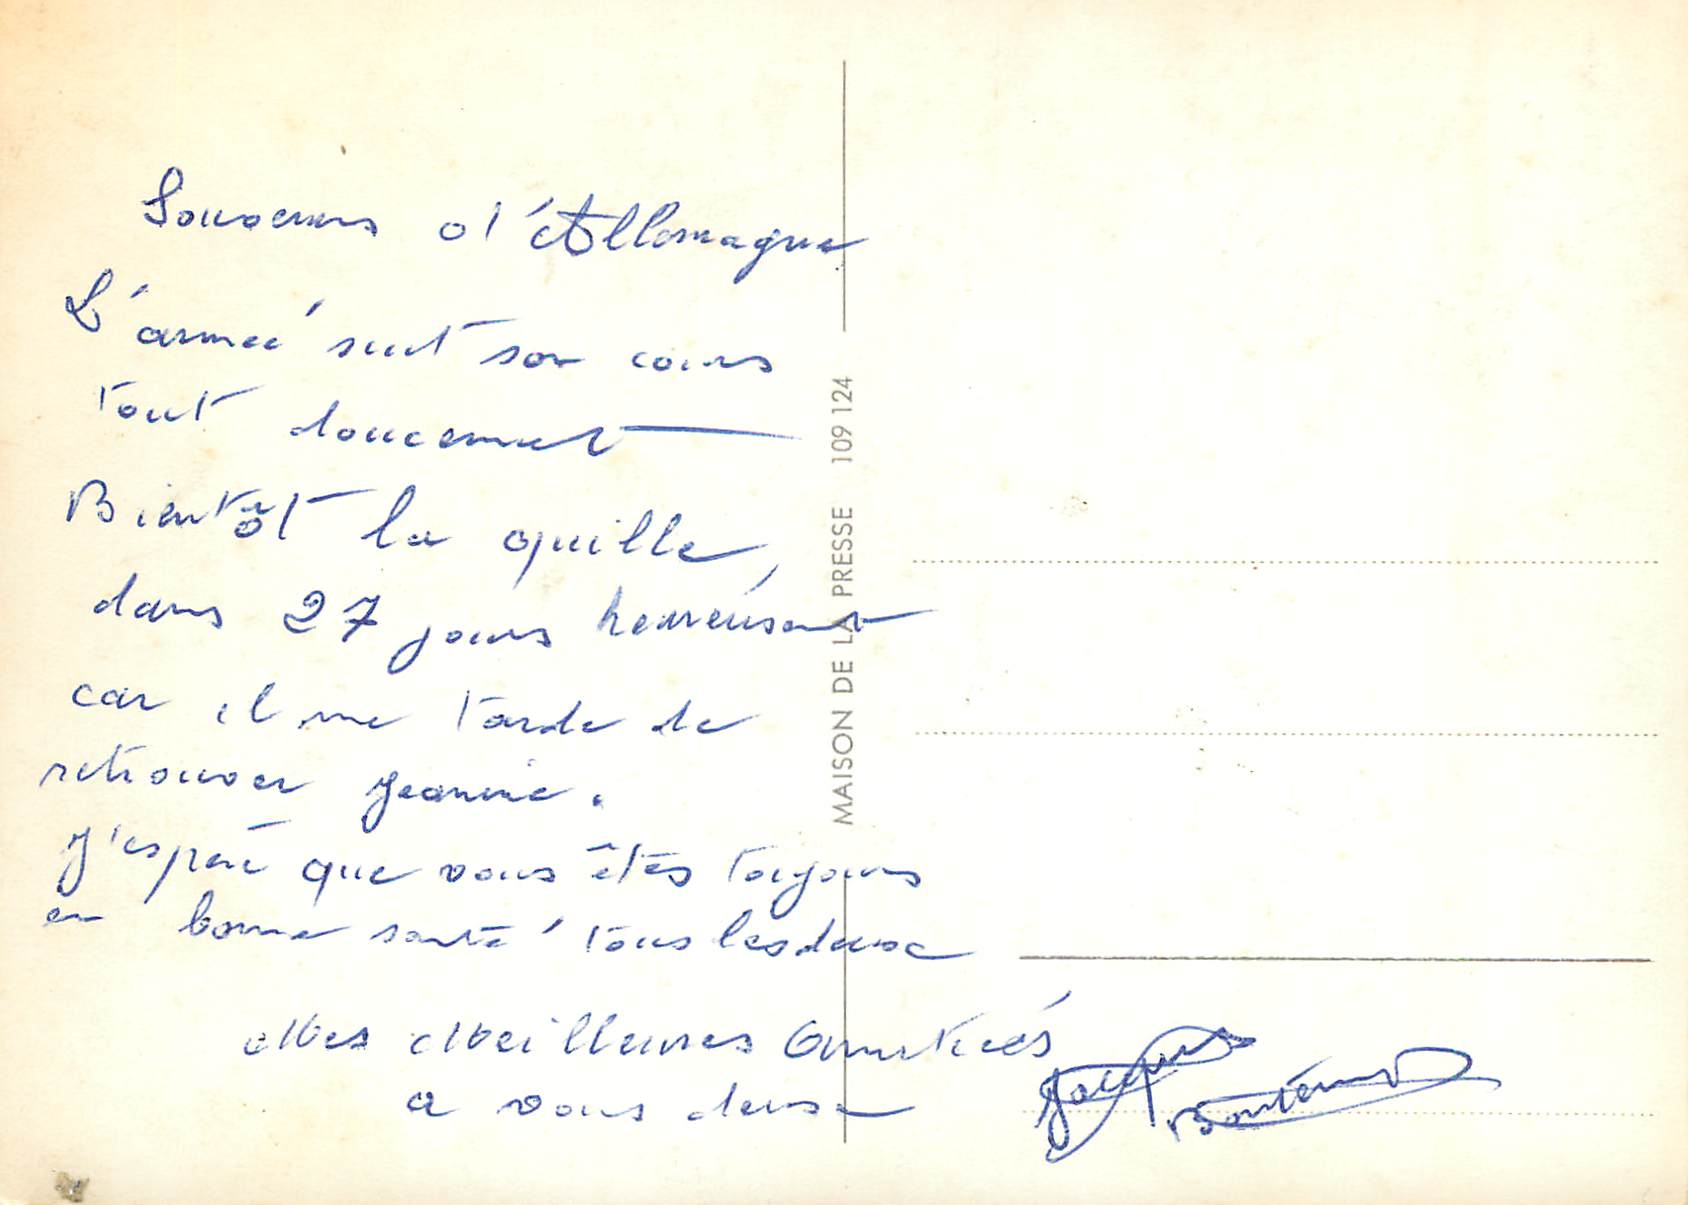 Souvenirs d'Allemagne
L'armée suit son cours
tout doucement
Bientôt la quille,
dans 27 jours heureusement
car il me tarde de
retrouver Jeanine.
J'espère que vous êtes toujours
en bonne santé tous les deux
Mes Meilleures Amitiés
a vous deux
Jacques
MAISON DE LA PRESSE 109 124